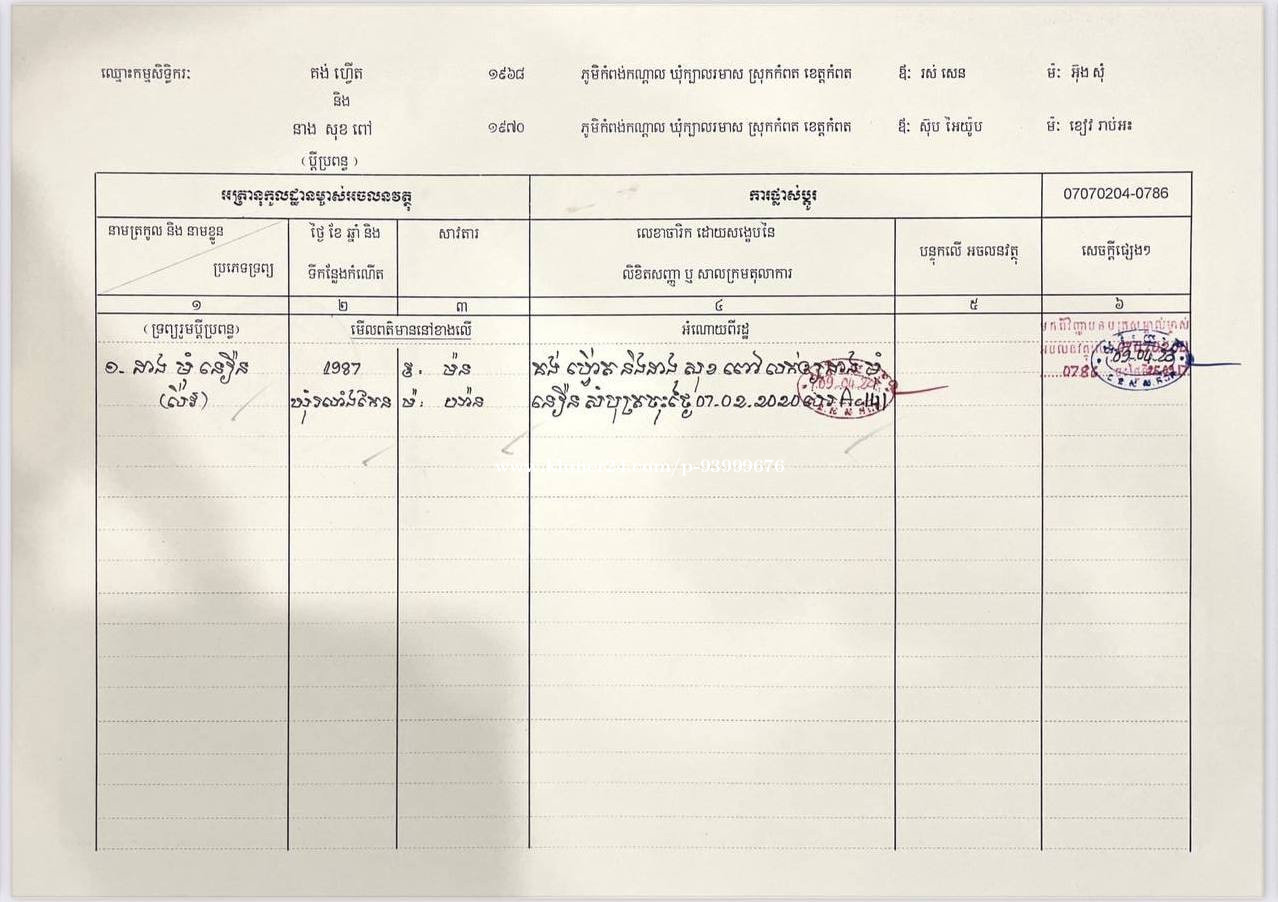 ឈ្មោះកម្មសិទ្ធិករៈ គង់ ហ្វើត ១៩៦៨ ភូមិកំពង់កណ្ដាល ឃុំក្បាលរមាស ស្រុកកំពត ខេត្តកំពត ឪៈ រស់ សេន ម៉ៈ អ៊ុង សុំ
និង
នាង សុខ ពៅ ១៩៧០ ភូមិកំពង់កណ្ដាល ឃុំក្បាលរមាស ស្រុកកំពត ខេត្តកំពត ឪៈ ស៊ុប អៃយ៉ូប ម៉ៈ ខៀវ រាប់អះ
(ប្ដីប្រពន្ធ)
អត្រានុកូលដ្ឋានម្ចាស់អចលនវត្ថុ ការផ្លាស់ប្ដូរ 07070204-0786
នាមត្រកូល និង នាមខ្លួន ថ្ងៃ ខែ ឆ្នាំ និង សាវតារ លេខាចារិក ដោយសង្ខេបនៃ បន្ទុកលើ អចលនវត្ថុ សេចក្ដីផ្សេងៗ
ប្រភេទទ្រព្យ ទីកន្លែងកំណើត លិខិតសញ្ញា ឬ សាលក្រមតុលាការ
១ ២ ៣ ៤ ៥ ៦
(ទ្រព្យរួមប្ដីប្រពន្ធ) មើលពត៌មាននៅខាងលើ អំណោយពីរដ្ឋ
១. នាង ម៉ំ នឿន 1987 ឪ: ម៉ន គង់ ហ្វើត និងនាង សុខ ពៅ លក់ឲ្យនាង ម៉ំ
(លីវ) ម៉ៈ នឿន សំបុត្រចុះថ្ងៃ 07.02.2020
09.04.22
09.04.22
0786
www.khmer24.com/p-93999676